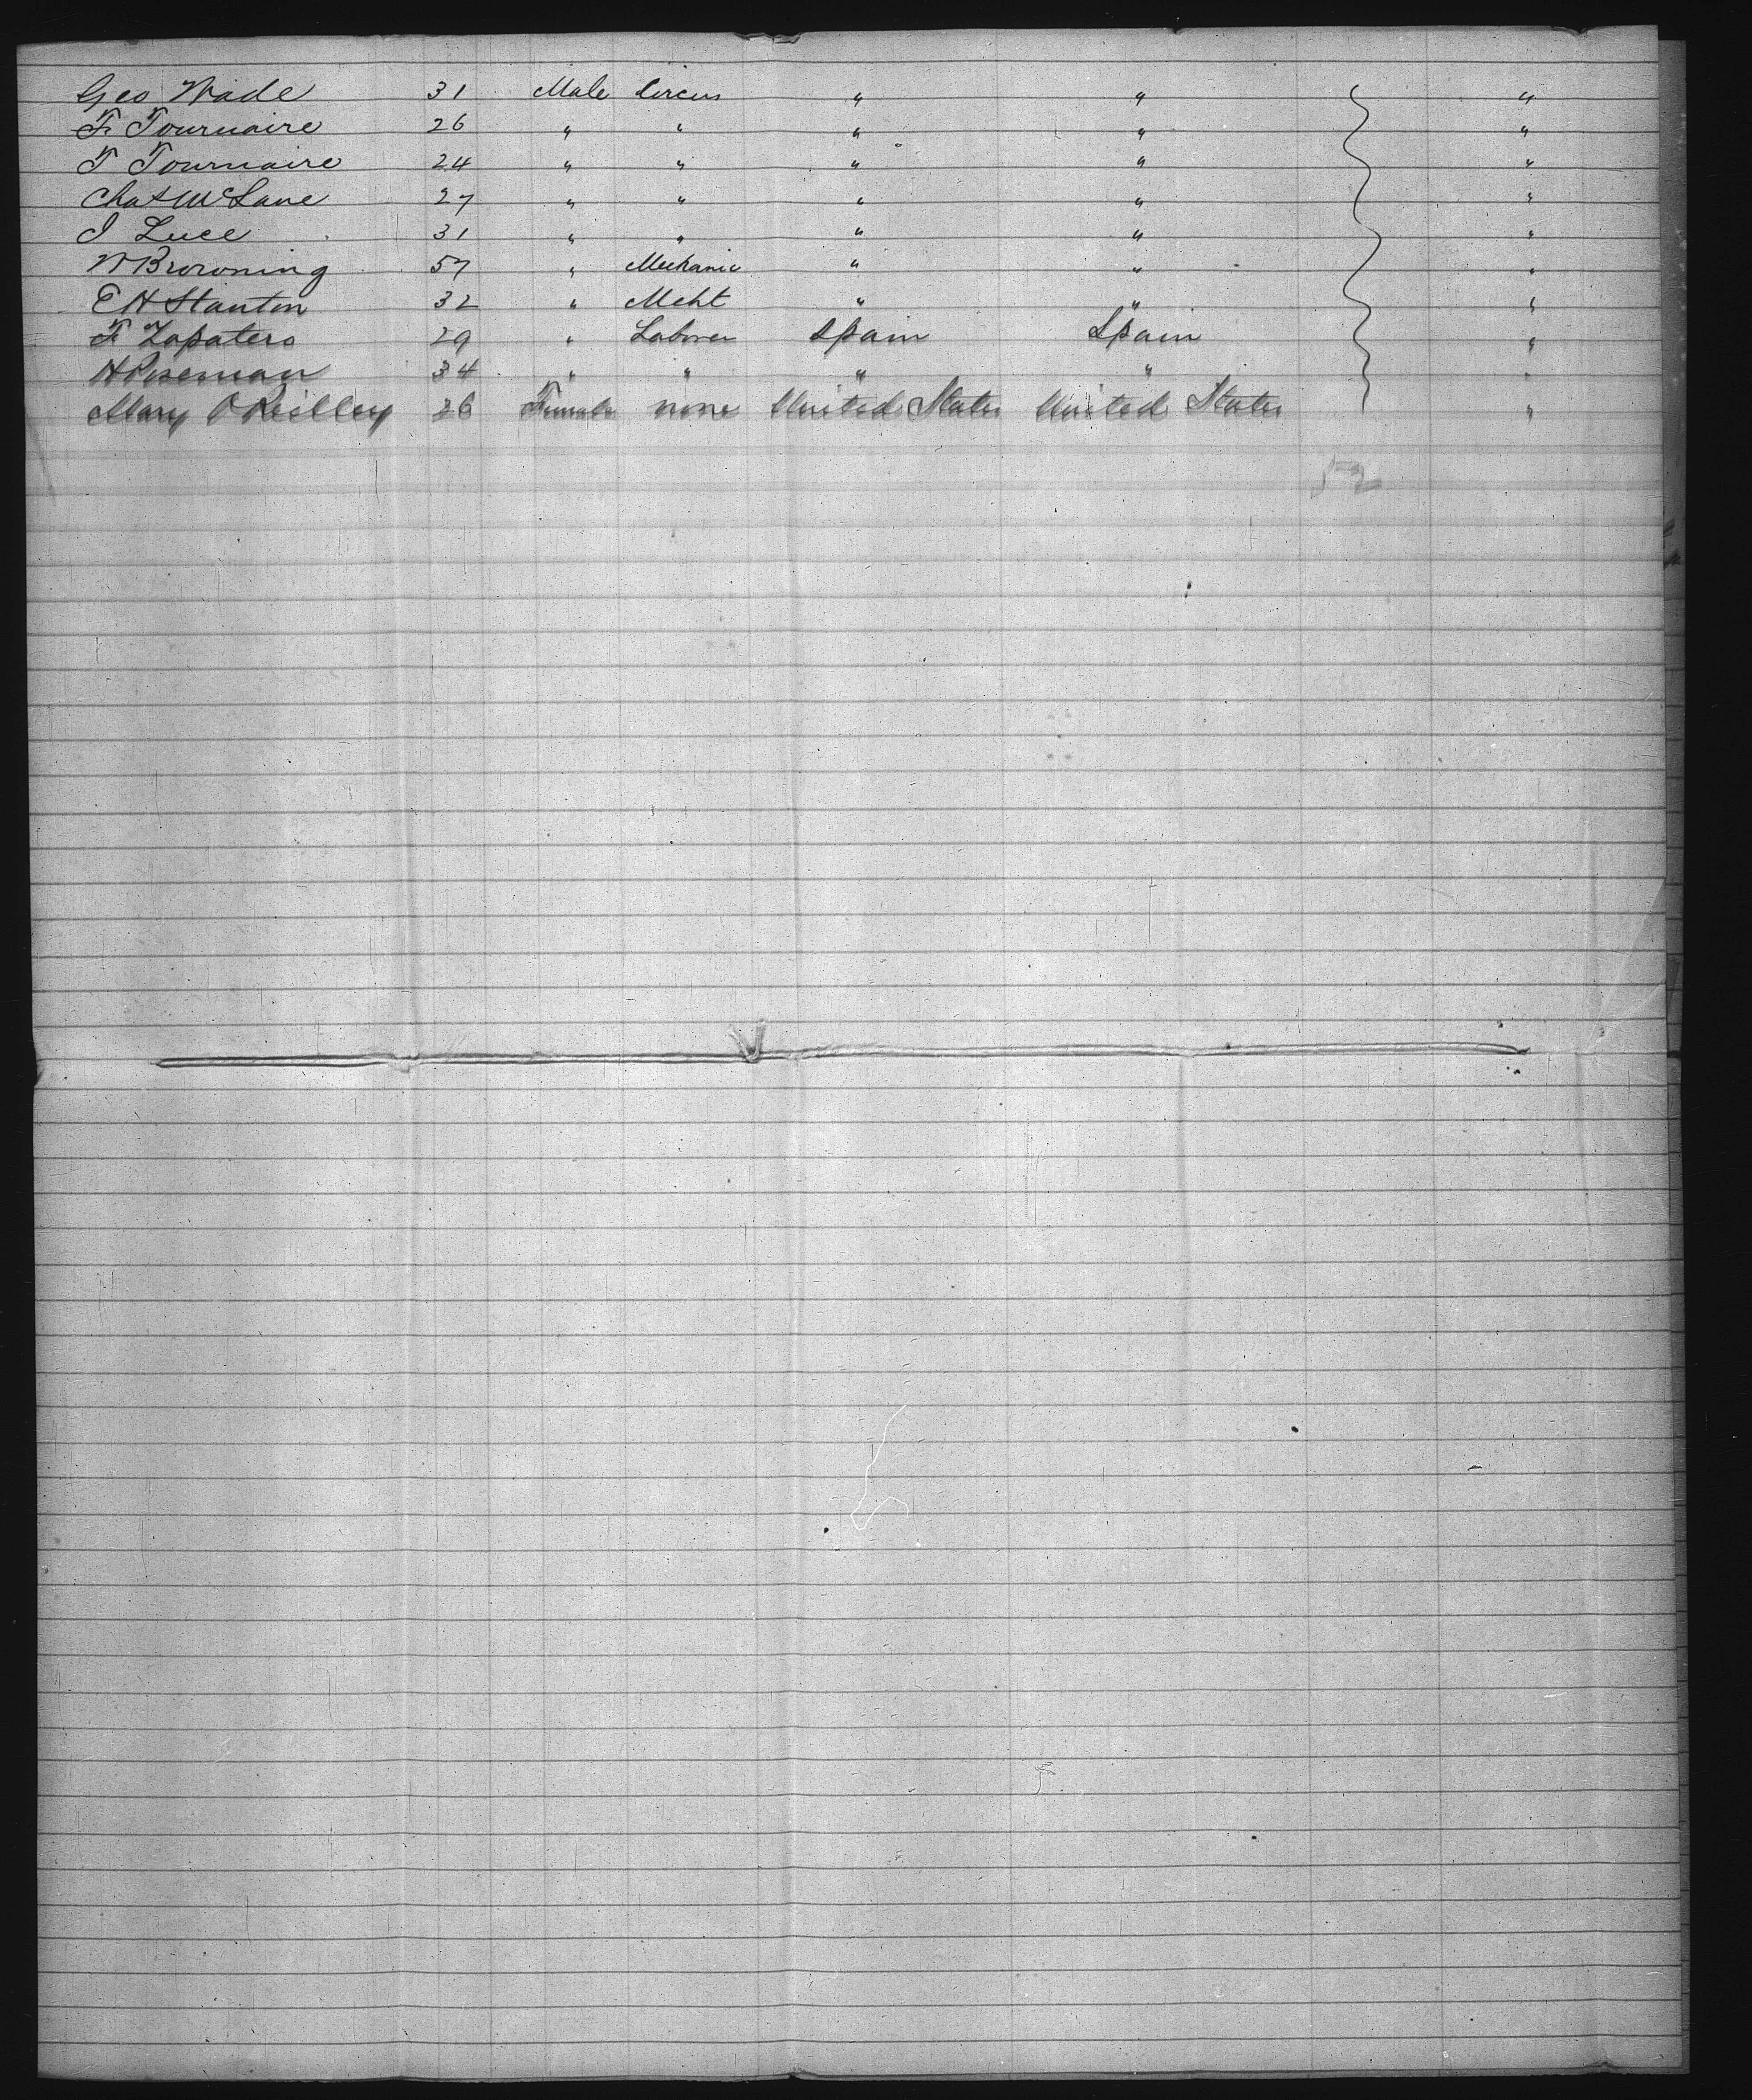 Geo Wade 31 Male Circus " " "
F. Tournaire 26 " " " " "
T Tournaire 24 " " " " "
Chas McLane 27 " " " " "
J Luce 31 " " " " "
W Browning 57 " Mechanic " " "
E H Stanton 32 " Mcht " " "
F Zapatero 29 " Laborer Spain Spain "
H Roseman 34 " " " " "
Mary O Reilley 26 Female none United States United States "
52